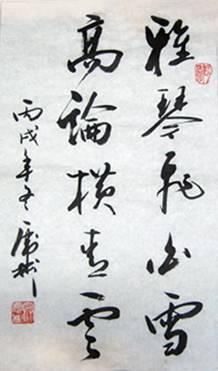 雅琴飛白雪
高論橫青雲
丙戌年冬